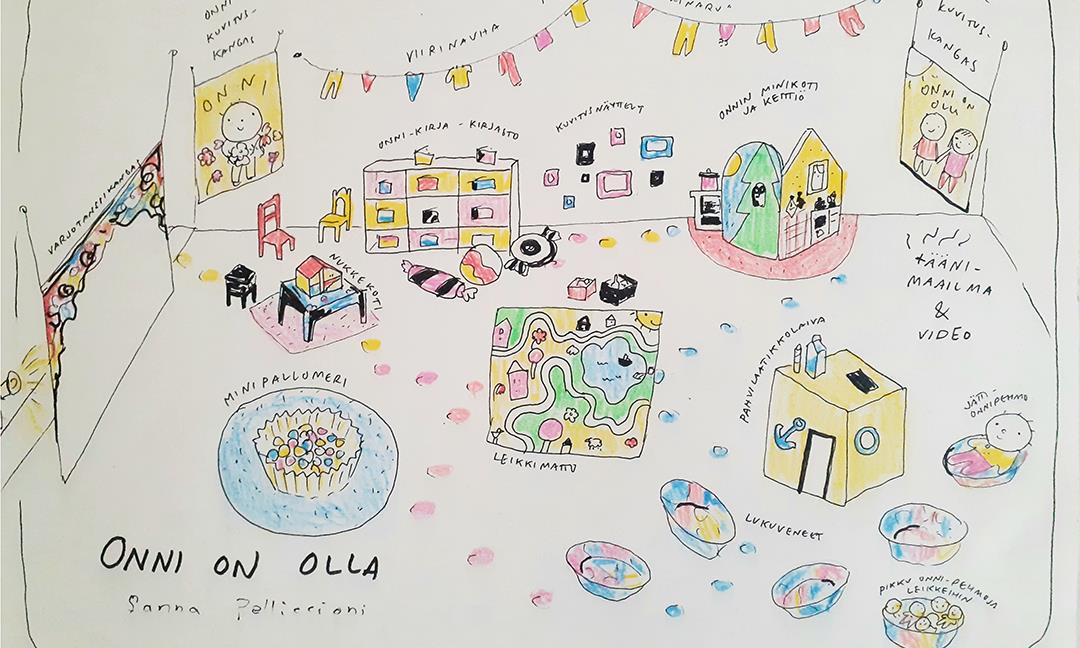 ONNI
KUVITUS-
KANGAS
ONNI
VIIRINAUHA
KUVITUS-
KANGAS
ONNI ON
VARJOTANSSIKANGAS
ONNI-KIRJA-KIRJASTO
KUVITUSNÄYTTELY
ONNIN MINIKOTI
JA KEITTIÖ
+ÄÄNI-
MAAILMA
&
VIDEO
NUKKEKOTI
MINIPALLOMERI
LEIKKIMATTO
PAHVILAATIKKOLAIVA
JÄTTI
ONNIPEHMO
LUKUVENEET
PIKKU ONNI-PEHMOJA
LEIKKEIHIN
ONNI ON OLLA
Sanna Pelliccioni